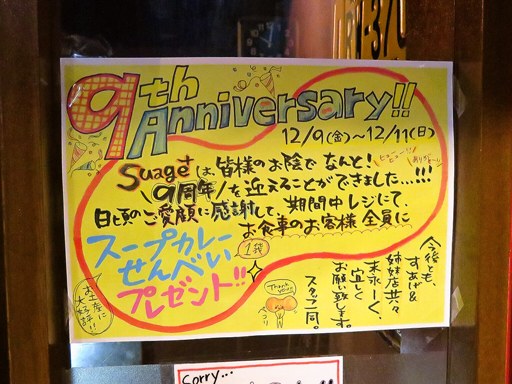 9th
Anniversary!!
12/9(金)～12/11(日)
Suage+は、皆様のお陰でなんと!
9周年!を迎えることができました...!!!
日頃のご愛顧に感謝して、期間中レジにて、
お食事のお客様全員に
スープカレー
せんべい
1袋
プレゼント!!
お土産に
大好評!!
Thank you!!
今後とも、
すあげ&
姉妹店共々
末永ーく、
宜しく
お願い致します。
スタッフ一同。
Sorry...